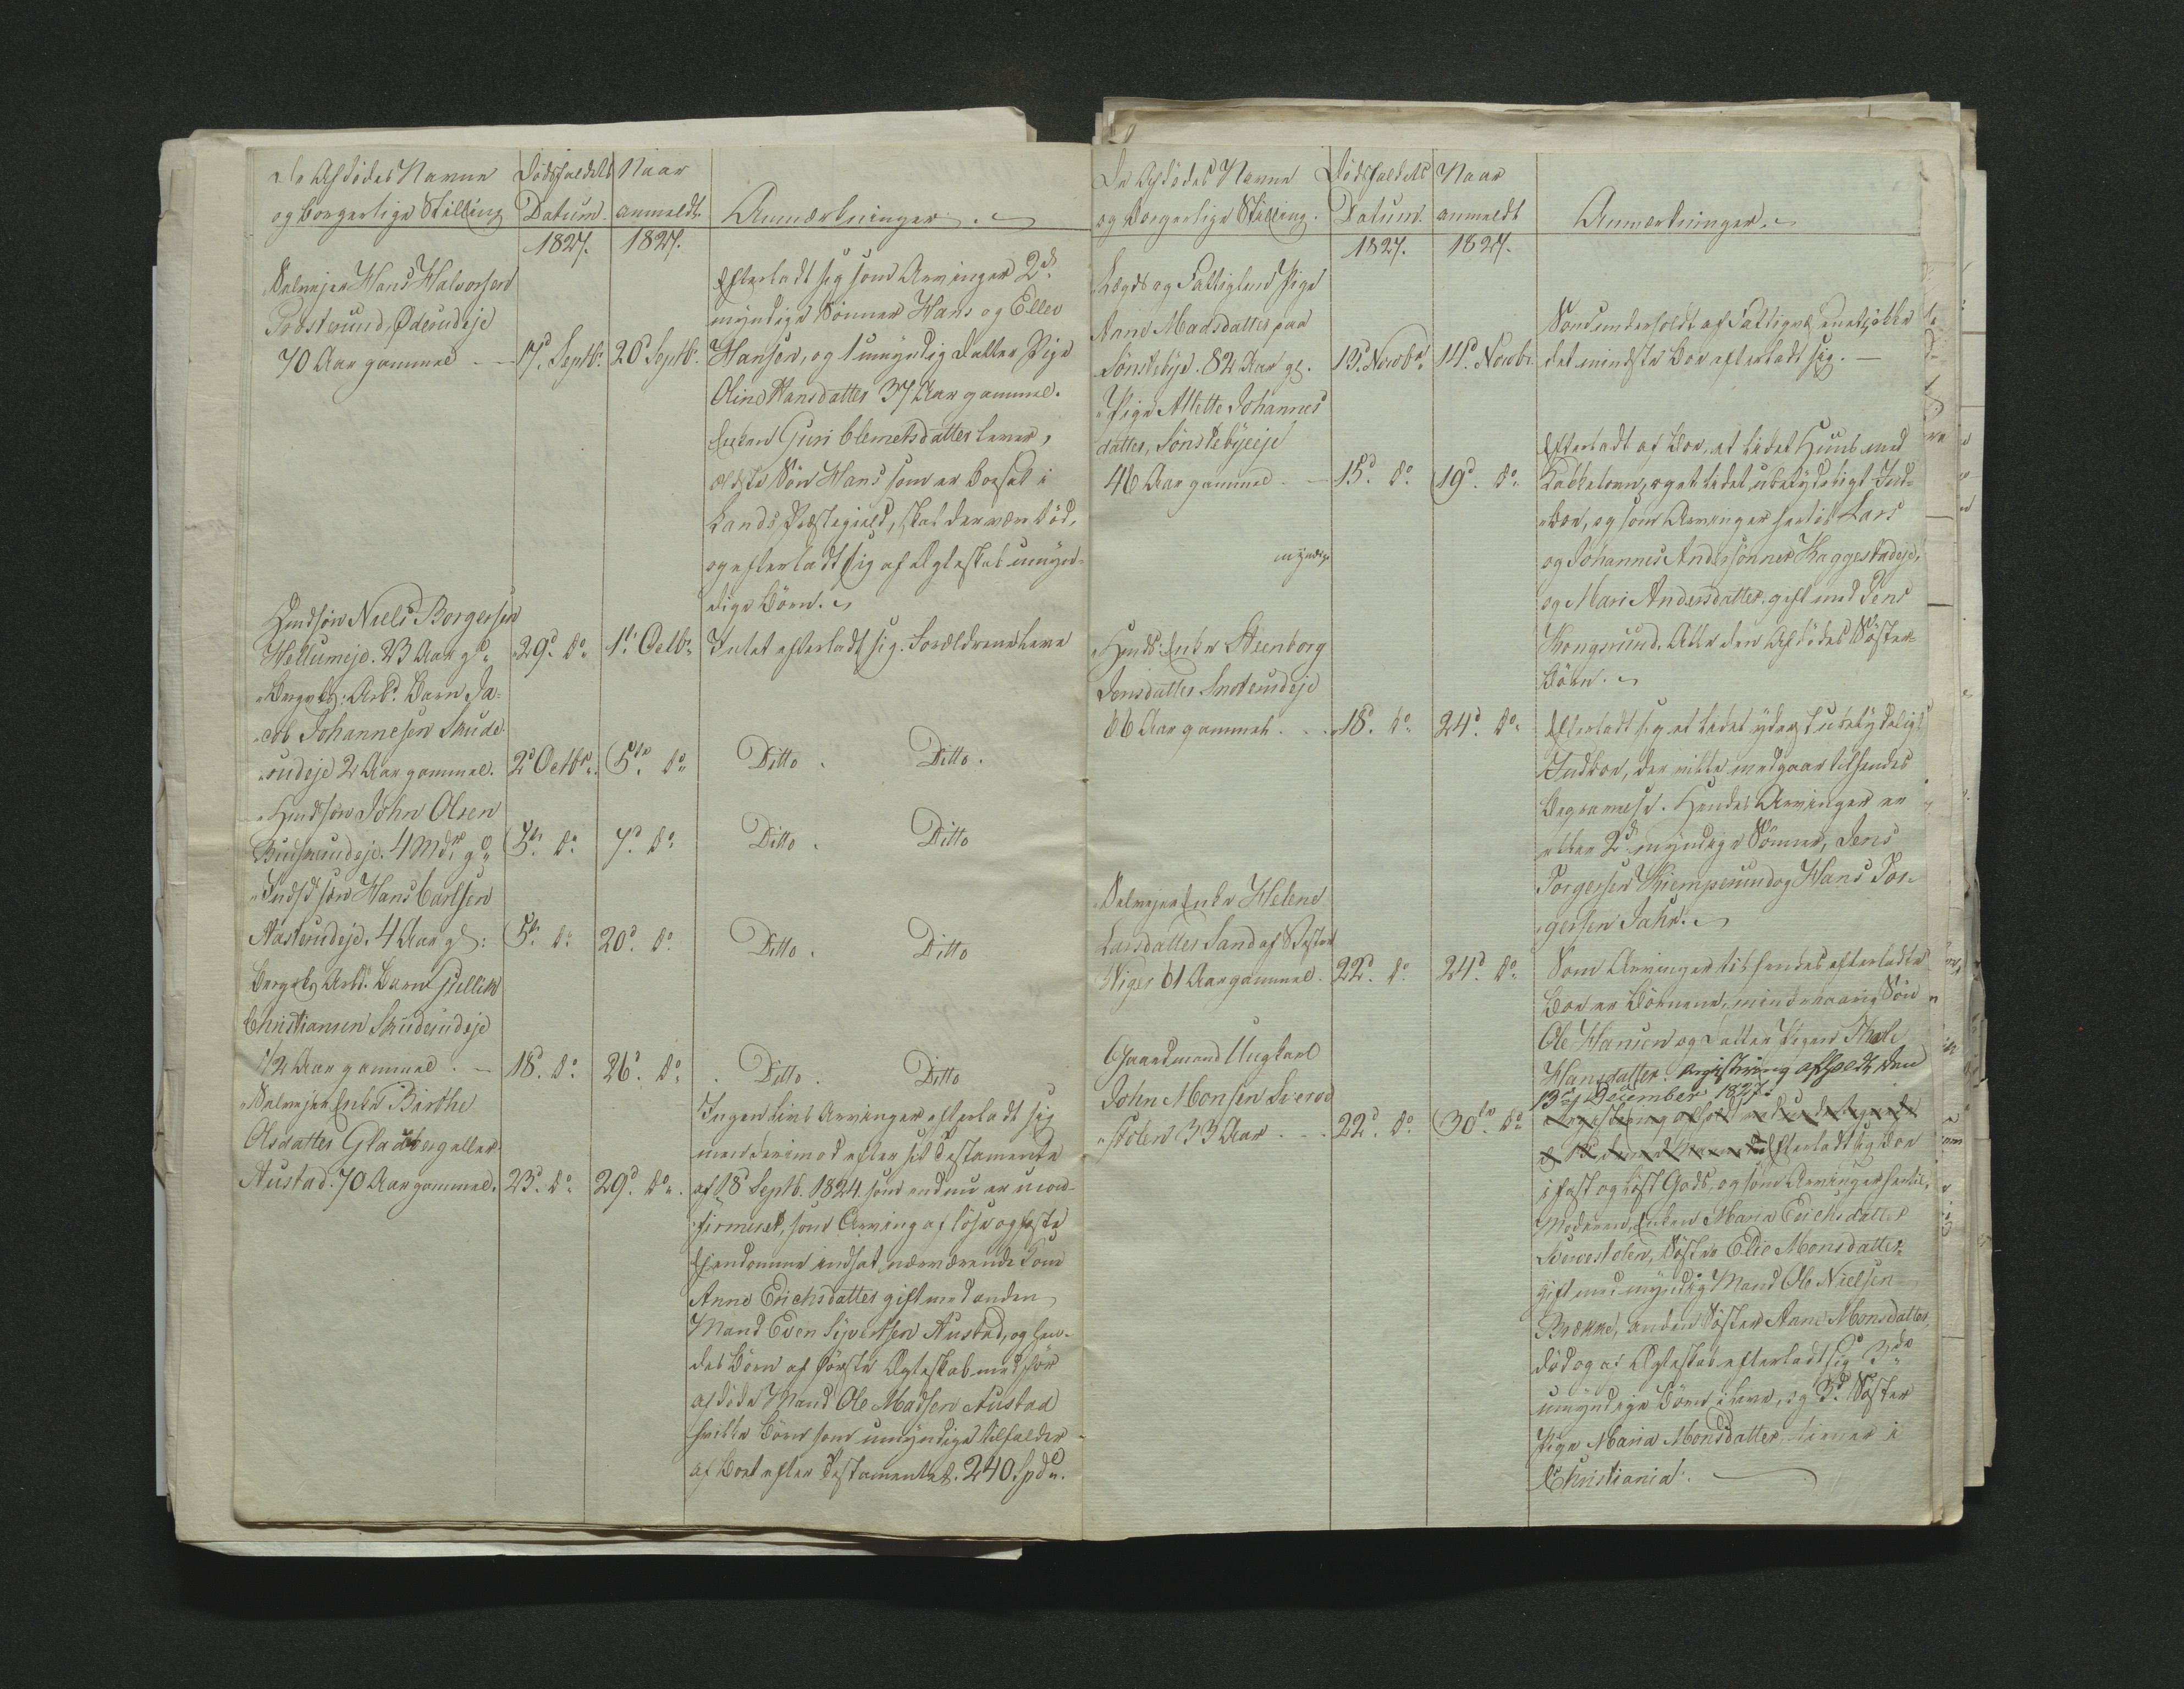 De Afdödes Navne
og borgerlige Stilling
Dödsfaldets
Datum.
Naar
anmeldt
Anmærkninger.
1827. 1827.
Selvejer Hans Halvorsen
Prosterud, Öderudeje
70 Aar gammel
17d. Septbr. 26d Septbr.
Efterladt sig som Arvinger 2de
myndige Sönner Hans og Ellev
Hansen, og 1 umyndig Datter Pige
Oline Hansdatter 37 Aar gammel.
Enken Guri Clemetsdatter lever,
ældste Sön Hans som er bosat i
Lands Præstegield, skal der være död,
og efterladt sig af Ægteskab umyn-
dige Börn.
Huusm: sön Niels Borgersen
Hellumeje. 23 Aar gl.
29d. do. 1ste Octbr.
Intet efterladt sig. Forældrene leve
Bergv: Arb: Barn Ja-
cob Johannesen Skude-
rudeje 2 Aar gammel.
2d Octbr. 5te do.
Ditto. Ditto.
Huusm: sön John Olsen
4 Mdr. gl.
5te do. 7d. do.
Ditto. Ditto
Inds: sön Hans Carlsen
Aasterudeje. 4 Aar gl:
5te do. 20d. do.
Ditto. Ditto
Bergv: Arb: Barn
Christiansen Skuderudeje
1/2 Aar gammel.
18d. do. 26d. do.
Ditto. Ditto
Selvejer Enke Birthe
Olsdatter Gladberg eller
Austad. 70 Aar gammel.
23d. do. 29d. do.
Ingen Livs Arvinger efterladt sig
men derimod efter sit Testamente
af 18 Septb. 1824 som endnu er ucon-
firmeret, som Arving af löse og faste
Ejendomme indsat nærværende Kone
Anne Erichsdatter gift med anden
Mand Even Sivertsen Austad, og hen-
des Börn af förste Ægteskab med för
afdöde Mand Ole Madsen Austad
hvilke Börn som umyndige tilfalder
af Boet efter Testamentet. 240 Spd.
De Afdödes Navne
og borgerlige Stilling.
Dödsfaldets
Datum.
Naar
anmeldt
Anmærkninger.
1827. 1827.
Lægds og Fattiglem Pige
Anne Madsdatter paa
Sönstebye. 82 Aar gl.
13d. Novbr. 14d. Novbr.
Som underholdt af Fattigv: 
det mindste Boe efterladt sig.
Pige Allette Johannes
datter, Sönstebyeeje
46 Aar gammel.
15d. do. 19d. do.
Efterladt af Boe, et lidet Huus med
og et lidet ubetydeligt Ind-
boe, og som Arvinger hertil Lars
og Johannes Andersönner Haggestadeje,
myndige
og Mari Andersdatter gift med Jens
Kongsrud. Alle den Afdödes Söster-
Börn.
Huusm: Enke Steenborg
Jensdatter
66 Aar gammel.
18d. do. 24d. do.
Efterladt sig et lidet yderst ubetydeligt
Indboe, der vilde medgaae til hendes
Begravelse. Hendes Arvinger er
2de myndige Sönner, Jens
Torgersen Kiemperud og Hans Tor-
gersen Jahr.
Selvejer Enke Helene
Larsdatter Sand af Vester
Viger 61 Aar gammel.
22d. do. 24d. do.
Som Arvinger til hendes efterladte
Boe er Börnene, mindreaarig Sön
Ole Hansen og Datter Pigen
Hansdatter. Registrering afholdt den
13de December 1827.
Gaardmand Ungkarl
John Monsen Sverve
stolen 33 Aar
22d. do. 30te do.
Efterladt sig Boe
i fast og löst Gods, og som Arvinger hertil,
Moderen, Enken Maria Erichsdatter
Svervestolen, Söster Elie Monsdatter
gift med myndig Mand Ole Nielsen
Brække, anden Söster Anne Monsdatter,
död og af Ægteskab efterladt sig 3de
umyndige Börn i live, og 3d. Söster
Pige Maria Monsdatter, tiener i
Christiania.